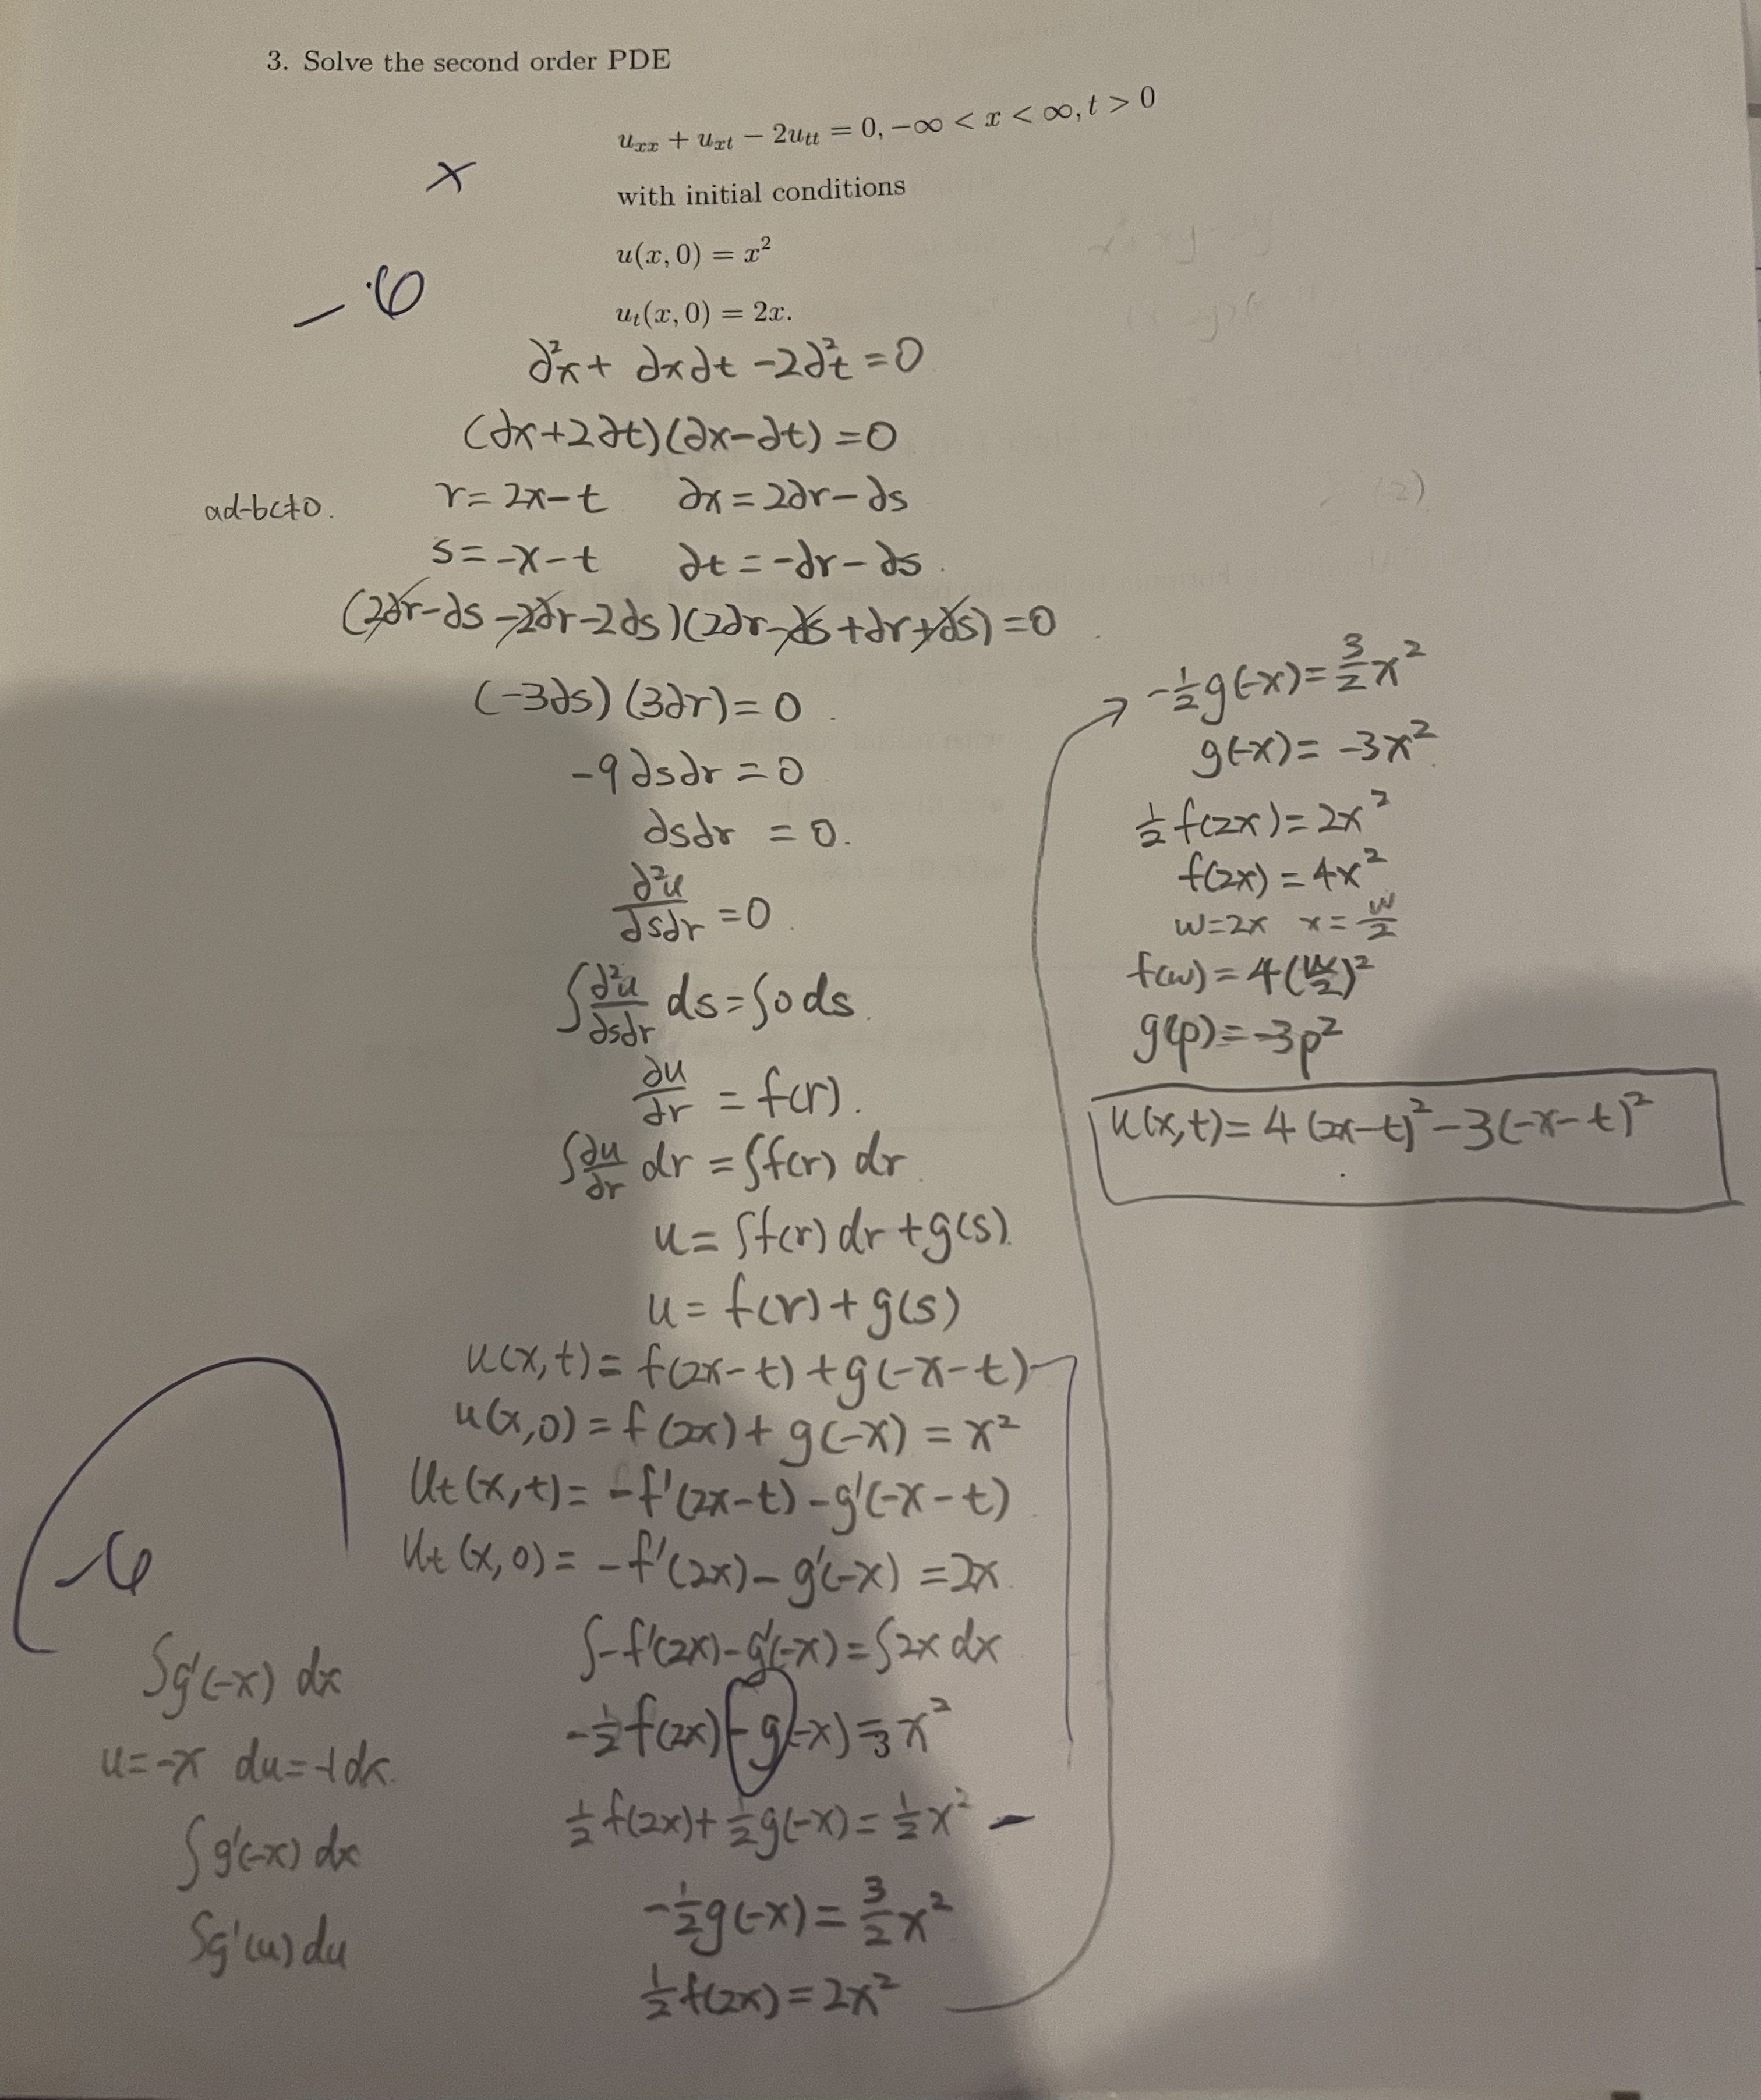 3. Solve the second order PDE
u_{xx} + u_{xt} − 2u_{tt} = 0, −∞ < x < ∞, t > 0
x
with initial conditions
u(x, 0) = x²
−6
u_t(x, 0) = 2x.
∂²x + ∂x∂t − 2∂²t = 0
(∂x+2∂t)(∂x−∂t) = 0
ad-bc≠0.
r = 2x − t   ∂x = 2∂r − ∂s
s = −x − t   ∂t = −∂r − ∂s.
(2∂r−∂s −2∂r−2∂s)(2∂r−∂s+∂r+∂s) = 0
(−3∂s)(3∂r) = 0.
−9∂s∂r = 0
∂s∂r = 0.
∂²u/∂s∂r = 0.
∫ ∂²u/∂s∂r ds = ∫0 ds.
∂u/∂r = f(r).
∫ ∂u/∂r dr = ∫f(r) dr.
u = ∫f(r) dr + g(s).
u = f(r) + g(s)
u(x,t) = f(2x−t) + g(−x−t)
u(x,0) = f(2x) + g(−x) = x²
u_t(x,t) = −f'(2x−t) − g'(−x−t)
u_t(x,0) = −f'(2x) − g'(−x) = 2x.
∫−f'(2x)−g'(−x) = ∫2x dx
−½f(2x) − g(−x) = x²
½f(2x) + ½g(−x) = ½x² −
−½g(−x) = 3/2 x²
½f(2x) = 2x²
−6
∫g'(−x) dx
u=−x   du=−1dx.
∫g'(−x) dx
∫g'(u) du
−½g(−x) = 3/2 x²
g(−x) = −3x².
½f(2x) = 2x²
f(2x) = 4x²
w=2x   x = w/2
f(w) = 4(w/2)²
g(p) = −3p²
u(x,t) = 4(2x−t)² − 3(−x−t)²